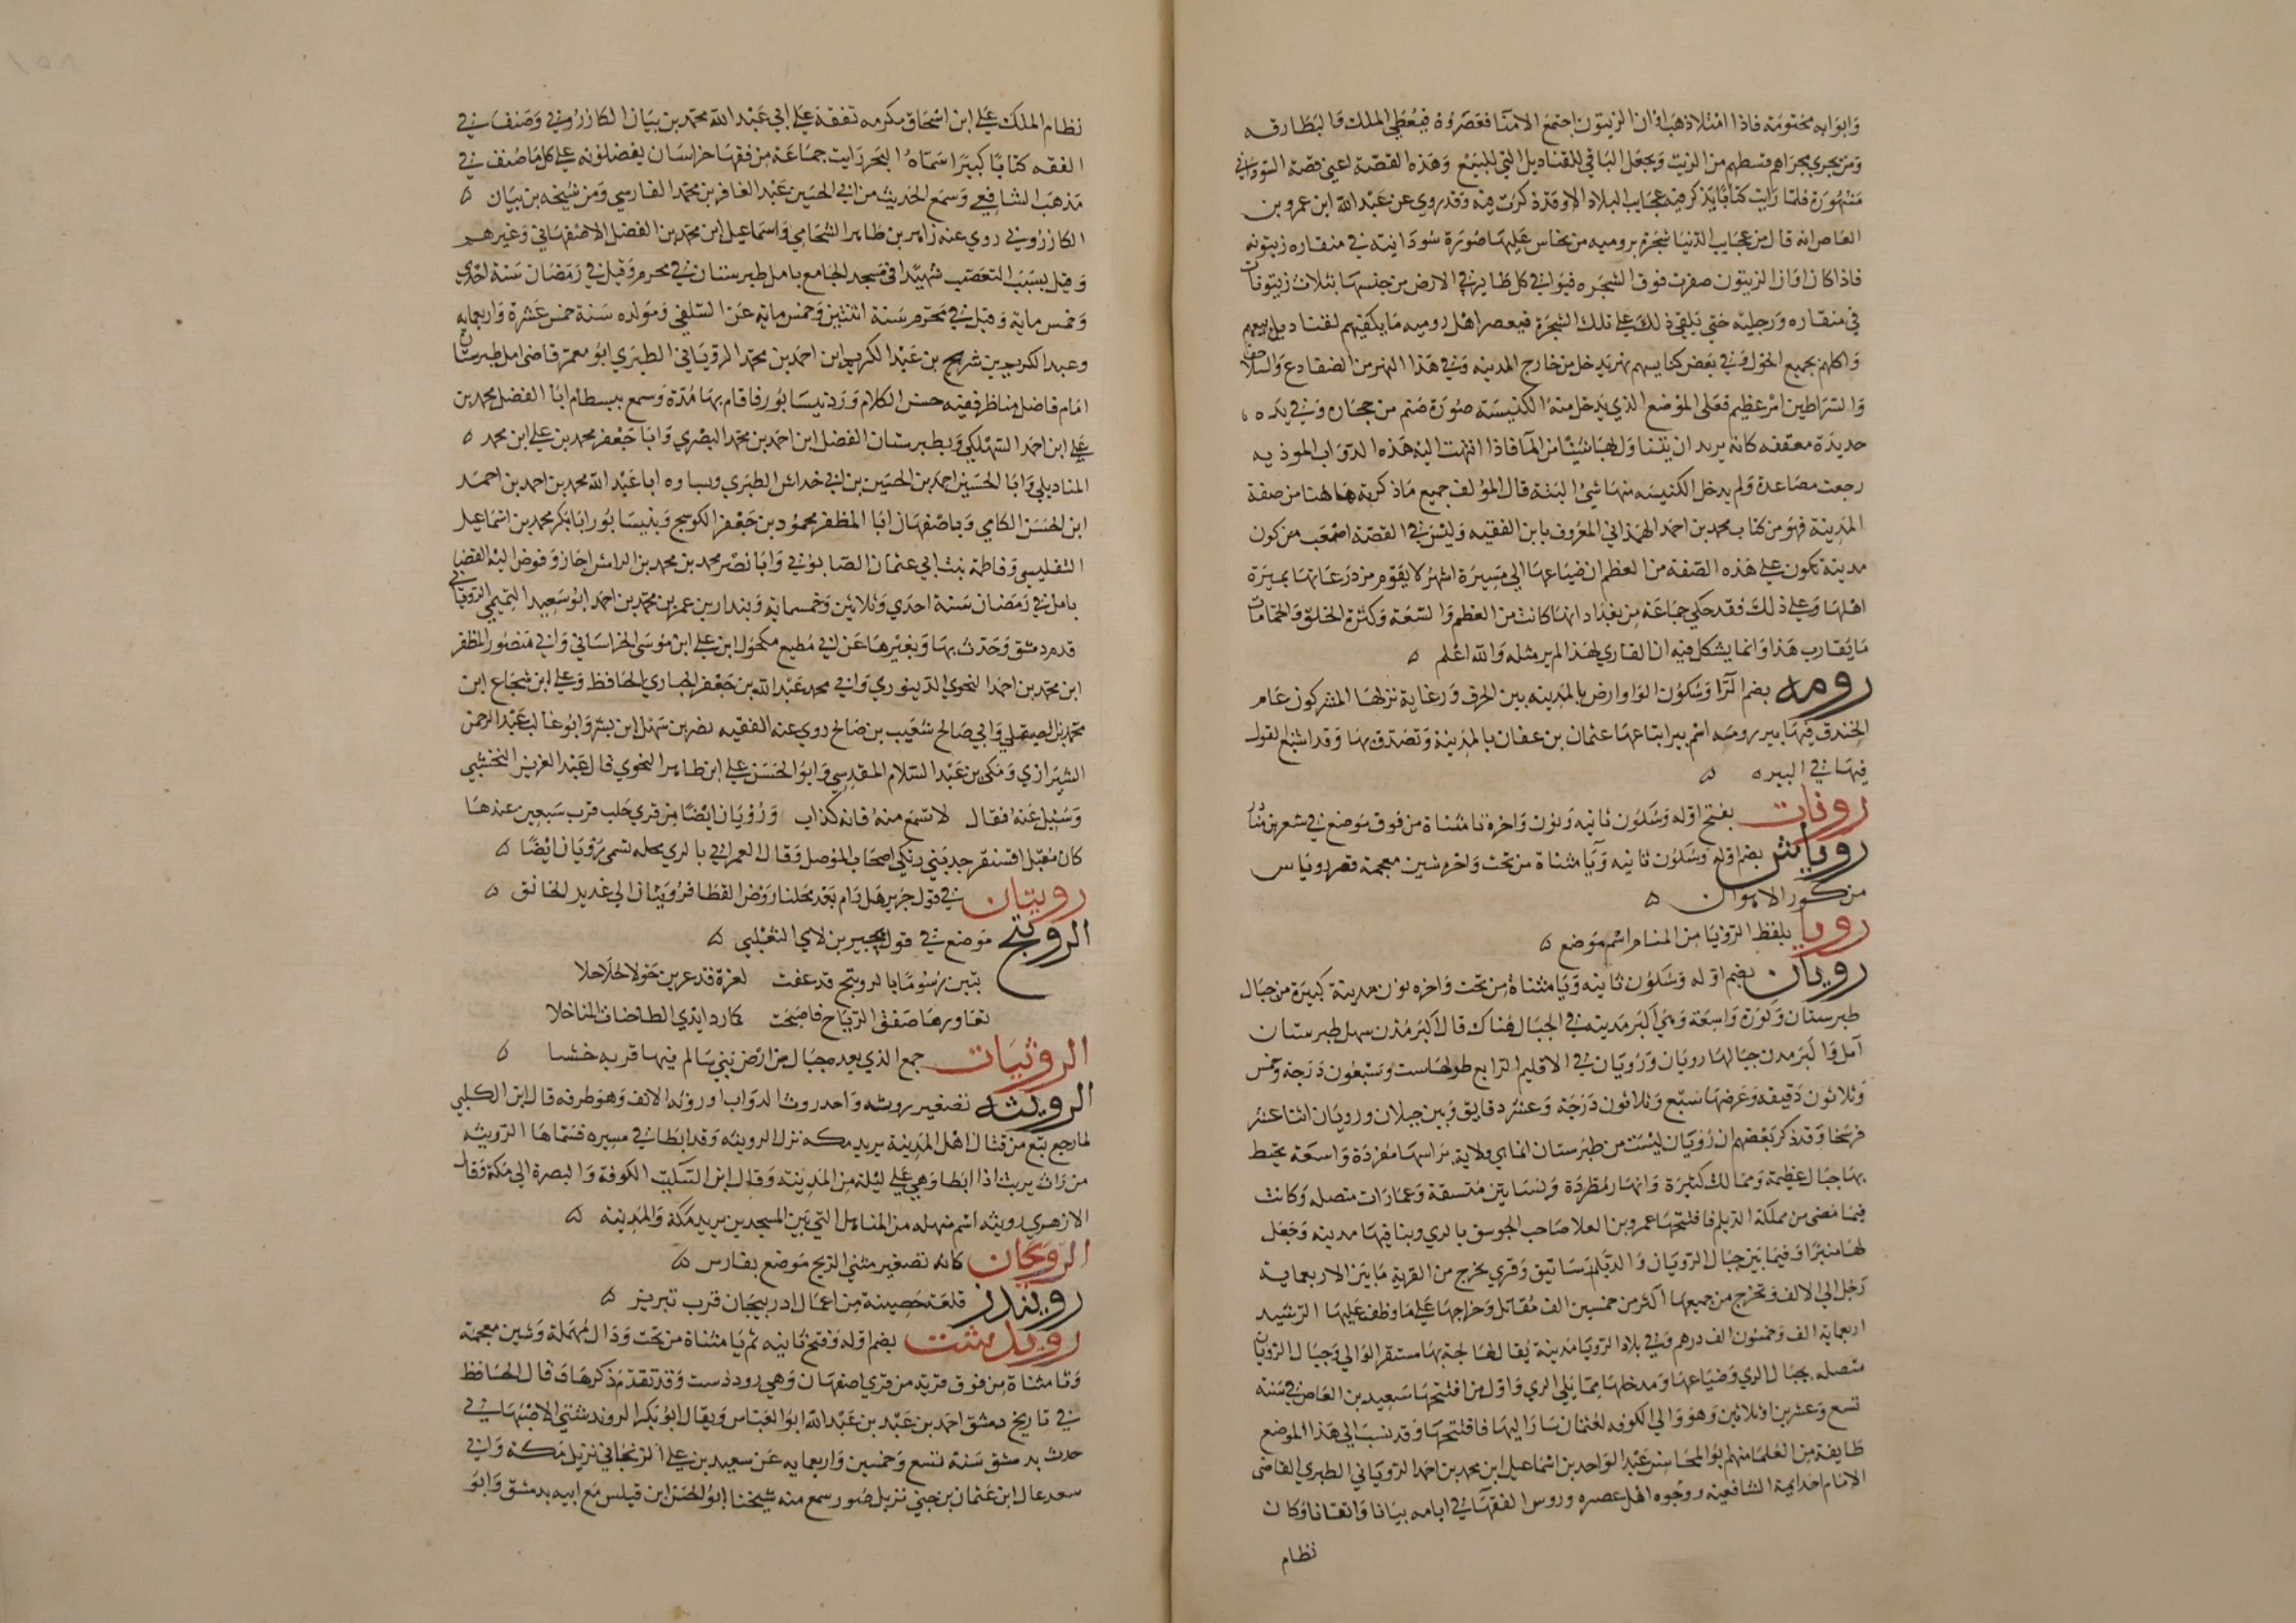 وابوابه مختومة فاذا امتلا ذهب اوان الزيتون اجتمع الامنا فعصروه فيعطي الملك والبطارقه
ومن يجري مجراهم قسطهم من الزيت ويجعل الباقي للقناديل التي للبيع وهذه القصة اعني قصة السوداني
مشهورة فلما رايت كتابا يذكر فيه عجايب البلاد الا وقد ذكرت فيه وقد روي عن عبد الله ابن عمرو بن
العاص انه قال من عجايب الدنيا شجرة برومية من نحاس عليها صورة سودانية في منقاره زيتونه
فاذا كان اوان الزيتون صفرت فوق الشجره فيوافي كل طاير في الارض من جنسها بثلاث زيتونات
في منقاره ورجليه حتى يلقي ذلك على تلك الشجرة فيعصر اهل روميه ما يكفيهم لقناديل بيعهم
واكلهم بجميع الحول وفي بعض كنايسهم نهر يدخل من خارج المدينه وفي هذا النهر من الضفادع والسلاحف
والسراطين امر عظيم فعلى الموضع الذي يدخل منه الكنيسة صورة صنم من حجاره وفي يده
حديدة معقفه كانه يريد ان يتناول بها شيئا من الما فاذا انتهت اليه هذه الدواب الموذيه
رجعت مصاعدة ولم يدخل الكنيسه منها شي البتة قال المؤلف جميع ما ذكر به هاهنا من صفة
المدينة فهو من كتاب محمد بن احمد الهمذاني المعروف بابن الفقيه وليس في القصة اصعب من كون
مدينة تكون على هذه الصفة من العظم ان ضياعها الى مسيرة اشهر لا يقوم مزدرعاتها بميرة
اهلها وعلى ذلك فقد حكى جماعة من بغداد انها كانت من العظم والسعة وكثرة الخلق والحمامات
ما يقارب هذا وانما يشكل فيه ان القاري لهذا لم ير مثله والله اعلم
رومه بضم الرا وسكون الواو ارض بالمدينه بين الجرف ورغابة نزلها المشركون عام
الخندق فيها بير رومه اسم بير ابتاعها عثمان بن عفان بالمدينة وتصدق بها وقد اشبع القول
فيها في البير
رونات بفتح اوله وسكون ثانيه ونون واخره تا مثناة من فوق موضع في شعر
رويانش بضم اوله وسكون ثانيه ويا مثناة من تحت واخره شين معجمة
من كور الاهواز
رويا بلفظ الرؤيا من المنام اسم موضع
رويان بضم اوله وسكون ثانيه ويا مثناة من تحت واخره نون مدينة كبيرة من جبال
طبرستان وكورة واسعة وهي اكبر مدينه في الجبال هناك قال اكبر مدن سهل طبرستان
آمل واكبر مدن جبالها رويان ورويان في الاقليم الرابع طولها ست وسبعون درجة وخمس
وثلاثون دقيقة وعرضها سبع وثلاثون درجة وعشر دقايق وبين جيلان ورويان اثنا عشر
فرسخا وقد ذكر بعضهم ان رويان ليست من طبرستان انما هي ولاية براسها مفردة واسعة يحيط
بها جبال عظيمة وممالك كثيرة وانهار مطردة وبساتين متسقة وعمارات متصله وكانت
فيما مضى من مملكة الديلم فافتتحها عمرو بن العلا صاحب الجوسق بالري وبنا فيها مدينه وجعل
لها منبرا وفيما بين جبال الرويان والديلم رساتيق وقرى يخرج من القرية ما بين الاربعماية
رجل الى الالف ويخرج من جميعها اكثر من خمسين الف مقاتل وخراجها على ما وظف عليها الرشيد
اربعماية الف وخمسون الف درهم وفي بلاد الرويان مدينة يقال لها كجة بها مستقر الوالي وجبال الرويان
متصله بجبال الري وضياعها ومدخلها مما يلي الري واول من افتتحها سعيد بن العاص في سنة
تسع وعشرين او ثلاثين وهو والي الكوفه لعثمان سار اليها فافتتحها وقد نسب الى هذا الموضع
طايفة من العلما منهم ابو المحاسن عبد الواحد بن اسماعيل ابن محمد بن احمد الروياني الطبري القاضي
الامام احد ايمة الشافعية ووجوه اهل عصره وروس الفقها في ايامه بيانا واتقانا وكان
نظام
نظام الملك علي ابن اسحاق مكرمه تفقه على ابي عبد الله محمد بن بيان الكازروني وصنف في
الفقه كتابا كبيرا سماه البحر رايت جماعة من فقها خراسان يفضلونه على كل ما صنف في
مذهب الشافعي وسمع الحديث من ابي الحسين عبد الغافر بن محمد الفارسي ومن شيخه بن بيان
الكازروني روي عنه زاهر بن طاهر الشحامي واسماعيل ابن محمد بن الفضل الاصفهاني وغيرهم
وقتل بسبب التعصب شهيدا في مسجد الجامع بامل طبرستان في محرم وقيل في رمضان سنة احدى
وخمس ماية وقيل في محرم سنة اثنتين وخمس ماية عن السلفي ومولده سنة خمس عشرة واربعمايه
وعبد الكريم بن شريح بن عبد الكريم ابن احمد بن محمد الروياني الطبري ابو معمر قاضي امل طبرستان
امام فاضل مناظر فقيه حسن الكلام ورد نيسابور فاقام بها مدة وسمع ببسطام ابا الفضل محمد بن
علي ابن احمد السهلكي وبطبرستان الفضل ابن احمد بن محمد البصري وابا جعفر محمد بن علي ابن محمد
المناديلي وابا الحسين احمد بن الحسين بن ابي خداش الطبري وبساوه ابا عبد الله محمد بن احمد بن احمد
ابن الحسن الكامي وباصفهان ابا المظفر محمود بن جعفر الكوسج وبنيسابور ابا بكر محمد بن اسماعيل
التفليسي وفاطمة بنت ابي عثمان الصابوني وابا نصر محمد بن محمد بن الرامش اجاز وفوض اليه القضا
بامل في رمضان سنة احدى وثلاثين وخمسماية وبندار بن عمر بن محمد بن احمد ابو سعيد التميمي الروياني
قدم دمشق وحدث بها وبغيرها عن ابي مطيع مكحول ابن علي ابن موسى الخراساني وابي منصور المظفر
ابن محمد بن احمد النحوي الدينوري وابي محمد عبد الله بن جعفر الجباري الحافظ وعلي ابن شجاع ابن
محمد بن الصيقلي وابي صالح شعيب بن صالح روي عنه الفقيه نصر بن سهل ابن بشر وابو غالب عبد الرحمن
الشيرازي ومكي بن عبد السلام المقدسي وابو الحسن علي ابن طاهر النحوي قال عبد العزيز النخشبي
وسئيل عنه فقال لا تسمع منه فانه كذاب ورؤيان ايضا من قرى حلب قرب سبعين عندها
كان مقتل اقسنقر جد بني زنكي اصحاب الموصل وقال العمراني بالري محله تسمى رويان ايضا
رويتان في قول جرير هل رام بعد محلنا روض القطا فرويتان الى غدير الخانق
الرويتج موضع في قول بجير بن لاي التغلبي
تبين رسوما بالرويتج قد عفت لعزة قد عرين حولا حلاحلا
تعاورها صفق الرياح فاصبحت كما رد ايدي الطاحنات المناخلا
الرويثات جمع الذي بعده جبال من ارض بني سالم فيها قريه خشسا
الرويثه تصغير روثه واحد روث الدواب او روثه الانف وهو طرفه قال ابن الكلبي
لما رجع تبع من قتال اهل المدينة يريد مكه نزل الرويثه وقد ابطا في مسيره فسماها الرويثه
من راث يريث اذا ابطا وهي على ليلة من المدينه وقال ابن السكيت الكوفة والبصرة الى مكة وقال
الازهري رويثه اسم منهله من المناهل التي بين المسجدين يريد مكة والمدينه
الرويحان كانه تصغير مثنى الريح موضع بفارس
رويندز قلعة حصينة من اعمال ادربيجان قرب تبريز
رويدشت بضم اوله وفتح ثانيه ثم يا مثناة من تحت ودال مهملة وشين معجمة
وتا مثناة من فوق قرية من قرى اصفهان وهي روددشت وقد تقدم ذكرها قال الحافظ
في تاريخ دمشق احمد بن عبد بن عبد الله ابو العباس ويقال ابو بكر الرويدشتي الاصبهاني
حدث بدمشق سنة تسع وخمسين واربعمايه عن سعيد بن علي الزنجاني نزيل مكة وابي
سعد عال ابن عثمان بن جني نزيل صور سمع منه شيخنا ابو الحسن ابن قبيس مع ابيه بدمشق وابو